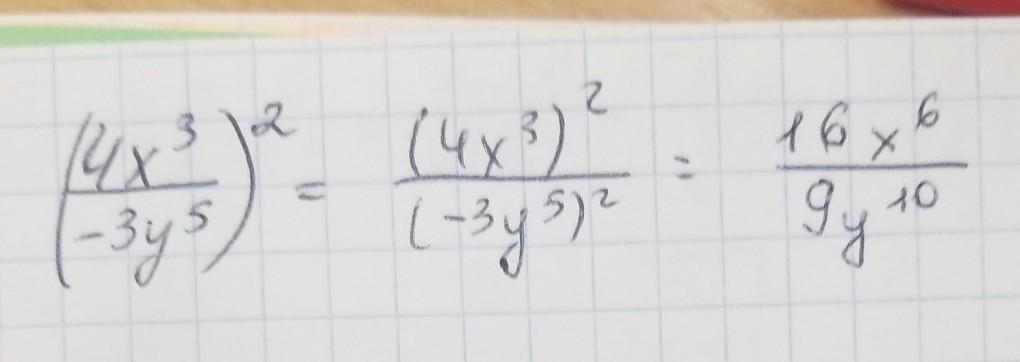 (4x³/-3y⁵)² = (4x³)²/(-3y⁵)² = 16x⁶/9y¹⁰